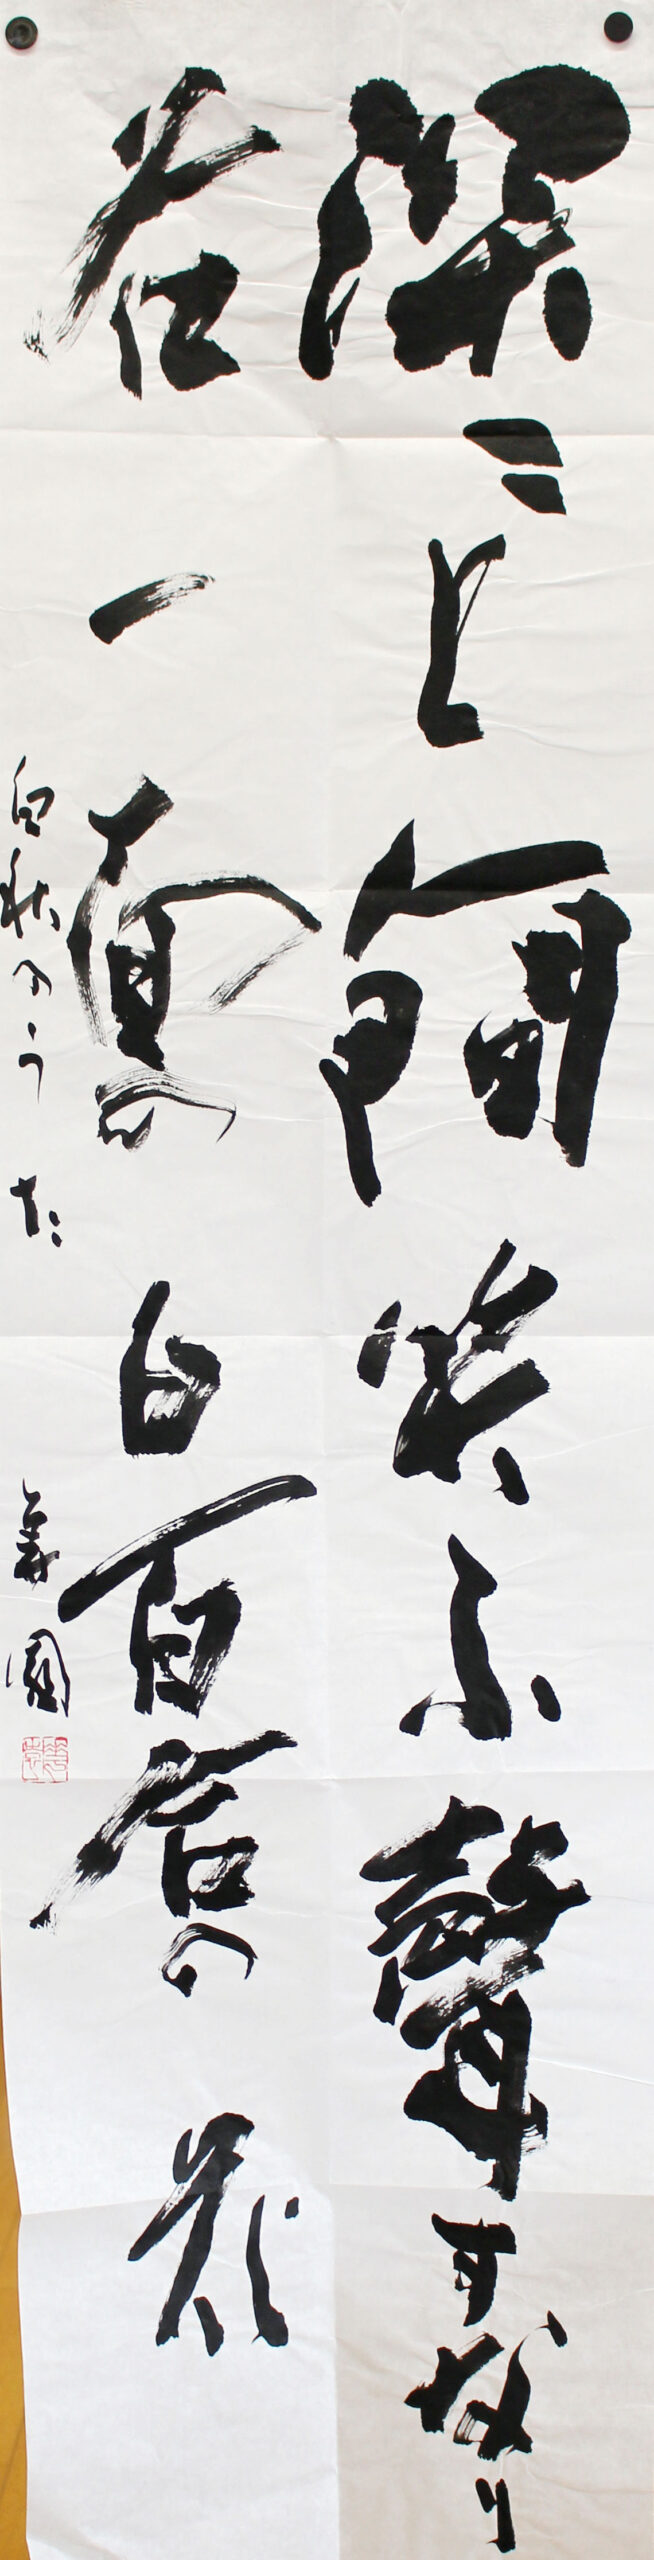 深々と人間笑ふ聲すなり
谷一面の白百合の花
白秋のうた